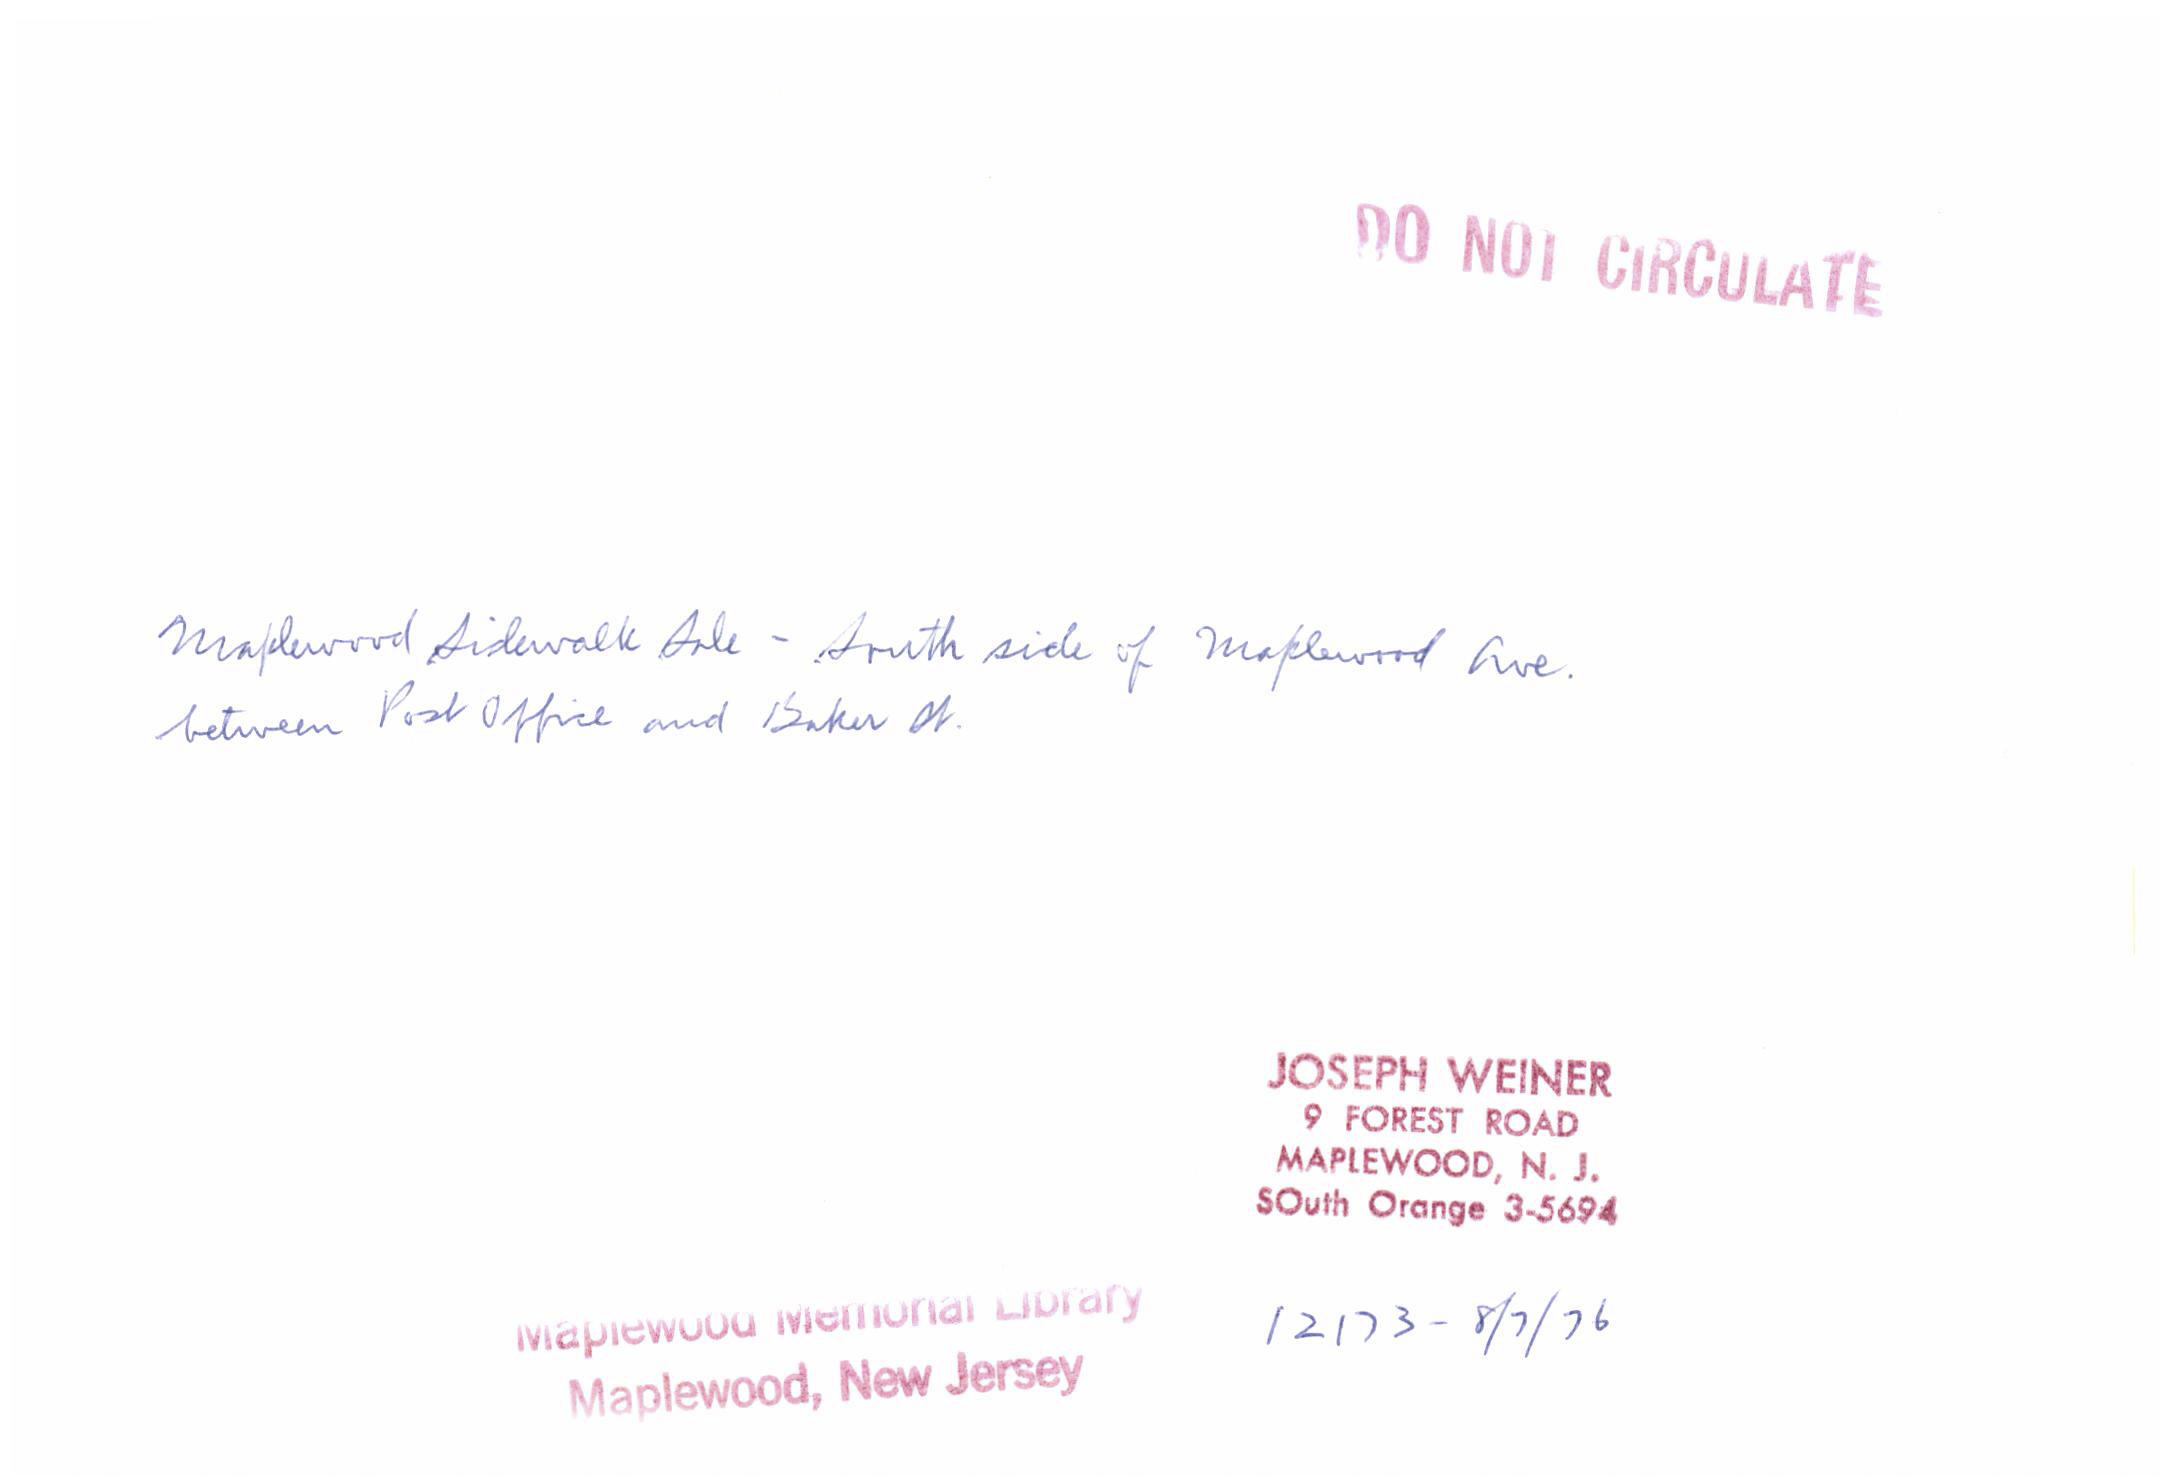 DO NOT CIRCULATE
Maplewood Sidewalk Sale - South side of Maplewood Ave.
between Post Office and Baker St.
JOSEPH WEINER
9 FOREST ROAD
MAPLEWOOD, N. J.
SOuth Orange 3-5694
12173 - 8/7/76
Maplewood Memorial Library
Maplewood, New Jersey